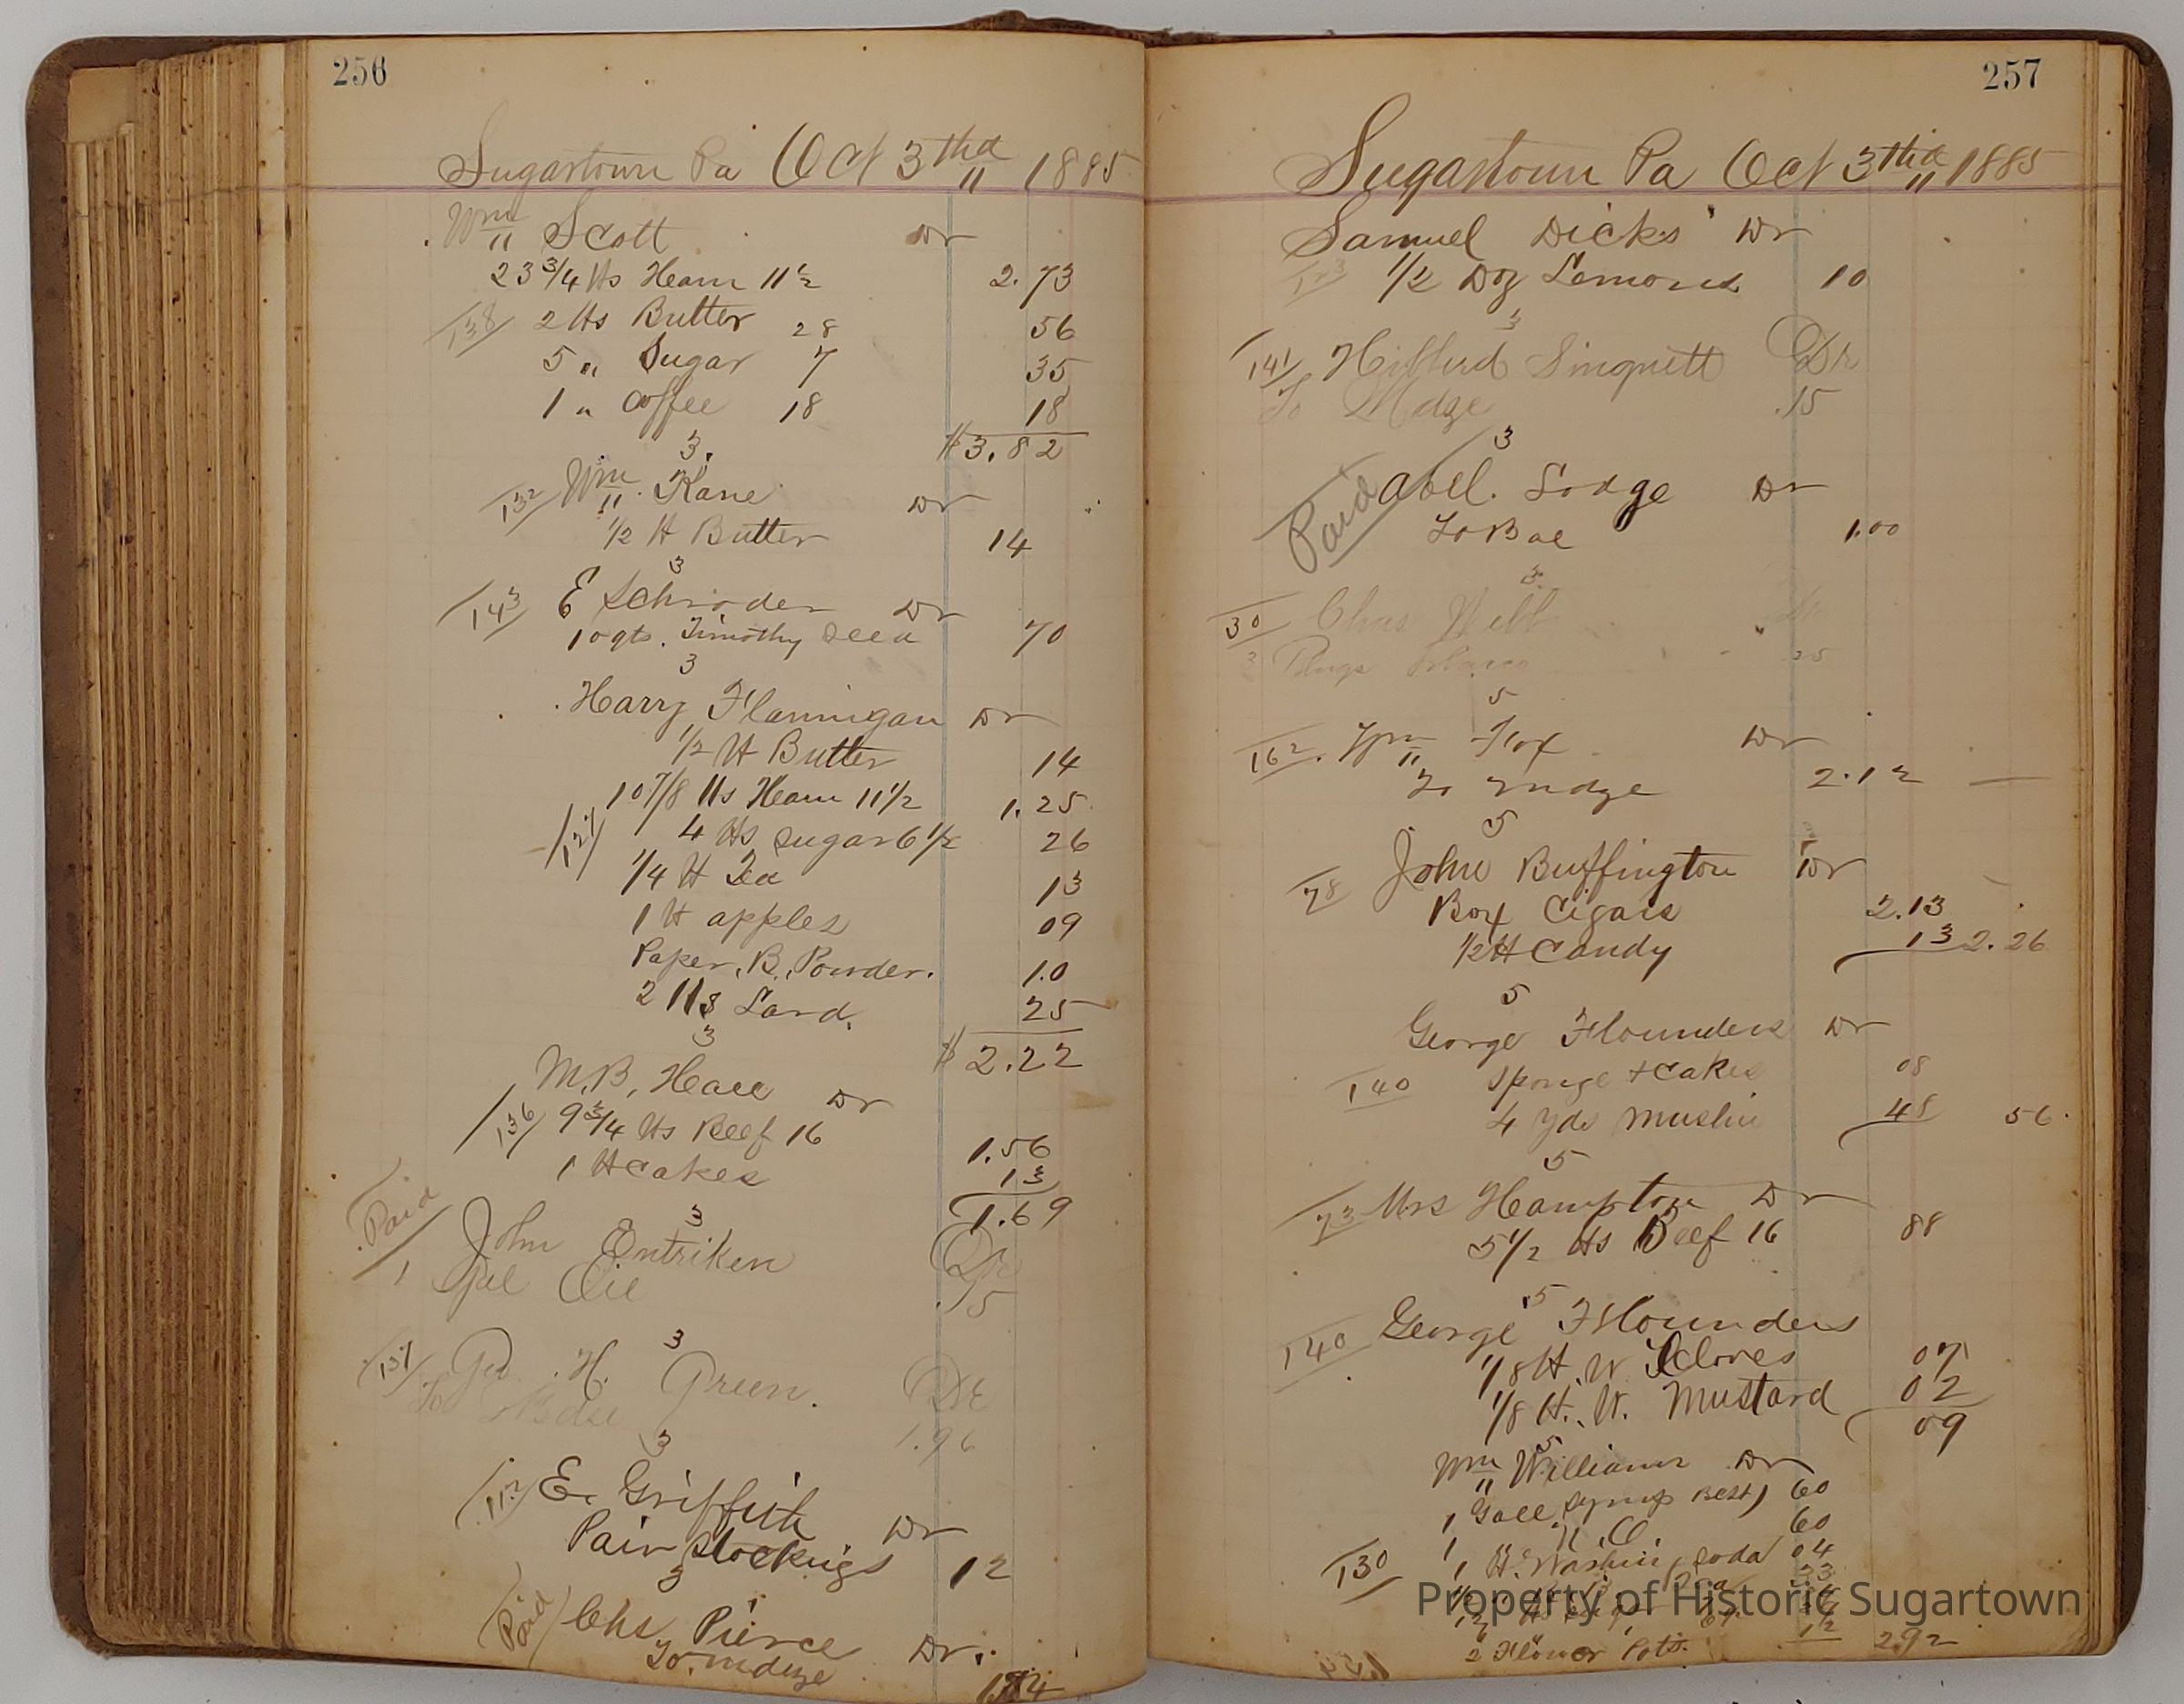 256
Sugartown Pa Oct 3thd 1885
Wm Scott Dr
23 3/4 lbs Ham 11 1/2 2.73
138 2 lbs Butter 28 56
5 " Sugar 7 35
1 " Coffee 18 18
$3.82
3
132 Wm Kane Dr
1/2 lb Butter 14
3
143 E Schroder Dr
10 qts. Timothy Seed 70
3
Harry Flannigan Dr
1/2 lb Butter 14
10 7/8 lbs Ham 11 1/2 1.25
4 lbs Sugar 6 1/2 26
1/4 lb Tea 13
1 lb apples 09
Paper, B. Powder. 10
2 lbs Lard. 25
$2.22
3
M.B. Hall Dr
136 9 3/4 lbs Beef 16 1.56
1 lb Cakes 13
1.69
3
Paid John Entriken Dr
1 Gal Oil 15
3
137 Geo. H. Green. Dr
To Mdse 1.96
3
113 E. Griffith Dr
Pair Stockings 12
3
Paid Chs Pierce Dr.
To mdze
257
Sugartown Pa Oct 3thd 1885
Samuel Dicks Dr
1/2 Doz Lemons 10
3
141 Hibberd Dr
To Mdze .15
3
Paid Abel. Lodge Dr
To Bal 1.00
3
30 Chas Webb Dr
3 Plugs Tobacco 25
5
162. Wm Fox Dr
To mdze 2.12
5
78 John Buffington Dr
Box Cigars 2.13
1/2 lb Candy 13 2.26
5
George Flounders Dr
140 Sponge + Cakes 08
4 yds Muslin 48 56
5
73 Mrs Hampton Dr
5 1/2 lbs Beef 16 88
5
140 George Flounders
1/8 lb. W. Cloves 07
1/8 lb. W. Mustard 02
09
5
Wm Williams Dr
1 Gall Syrup Best 60
1 " N.O. 60
130 1 lb. Washing Soda 04
2 Flower Pots. 12 2.92
Property of Historic Sugartown